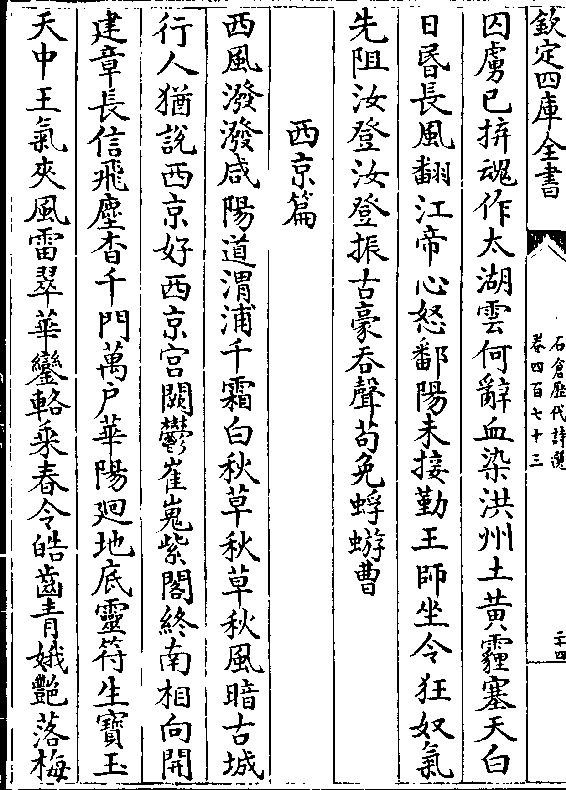 欽定四庫全書
石倉歷代詩選
卷四百七十三
二十四
囚虜已拚魂作太湖雲何辭血染洪州土黃霾塞天白
日昬長風翻江帝心怒鄱陽未接勤王師坐令狂奴氣
先阻汝登汝登振古豪吞聲苟免蜉蝣曹
西京篇
西風潑潑咸陽道渭浦千霜白秋草秋草秋風暗古城
行人猶說西京好西京宫闕鬱崔嵬紫閣終南相向開
建章長信飛塵杳千門萬户華陽廻地底靈符生寶玉
天中王氣夾風雷翠華鑾輅乘春令皓齒青娥艷落梅